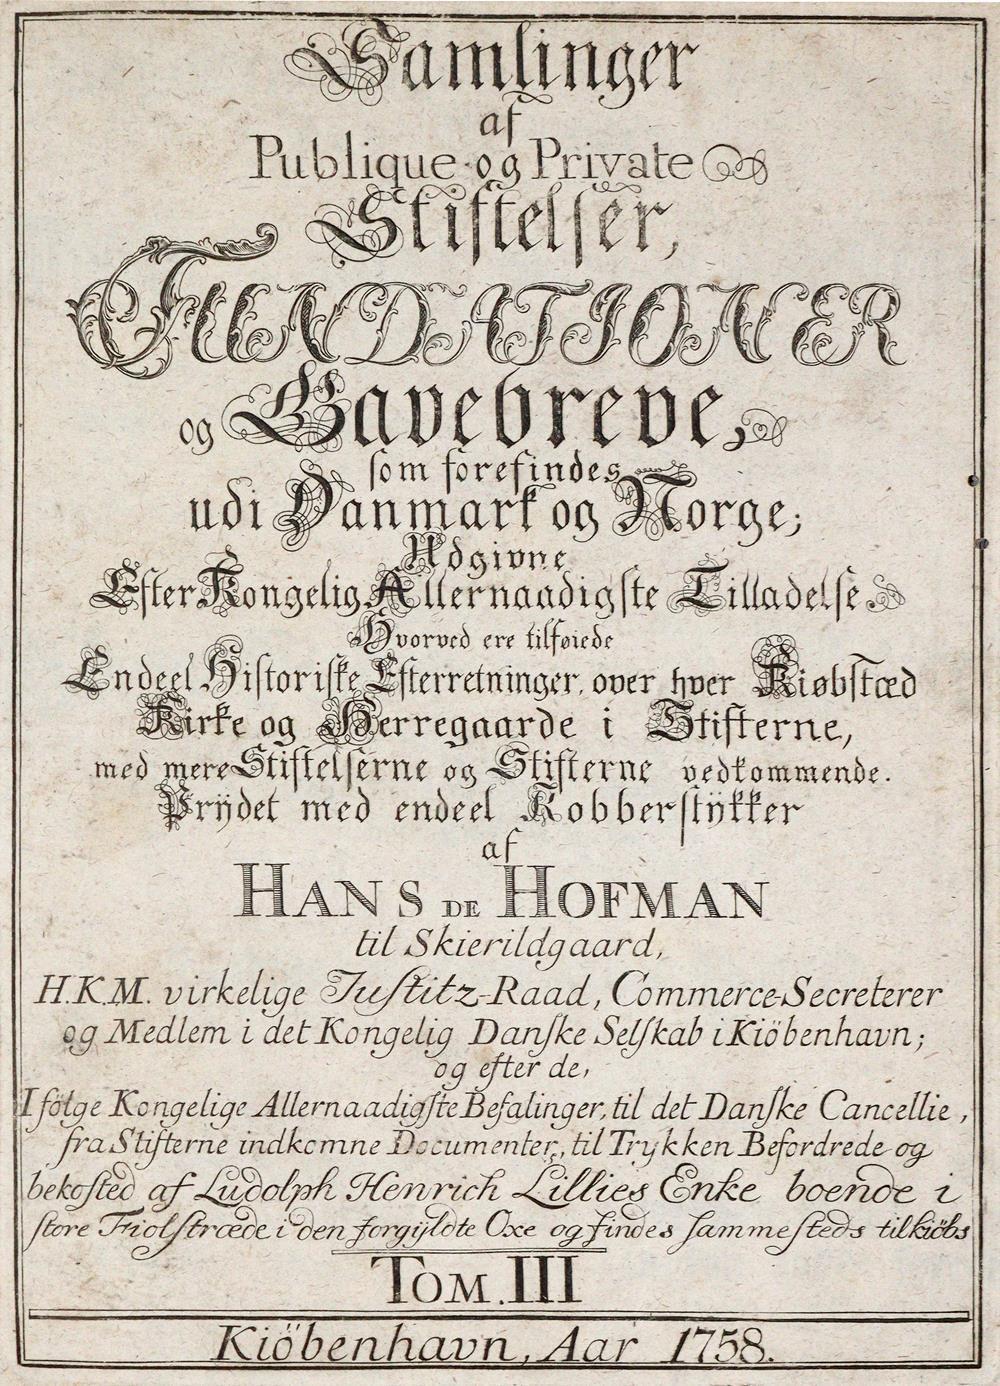 Samlinger
af
Publique og Private
Stiftelser,
FUNDATIONER
og Gavebreve,
som forefindes
udi Danmark og Norge;
Udgivne
Efter Kongelig Allernaadigste Tilladelse
Hvorved ere tilføiede
Endeel Historiske Efterretninger, over hver Kiøbstæd
Kirke og Herregaarde i Stifterne,
med mere Stiftelserne og Stifterne vedkommende.
Prÿdet med endeel Kobberstÿkker
af
HANS DE HOFMAN
til Skierildgaard,
H.K.M. virkelige Justitz-Raad, Commerce-Secreterer
og Medlem i det Kongelig Danske Selskab i Kiöbenhavn;
og efter de,
I følge Kongelige Allernaadigste Befalinger, til det Danske Cancellie,
fra Stifterne indkomne Documenter, til Trykken Befordrede og
bekosted af Ludolph Henrich Lillies Enke boende i
store Fiolstræde i den forgÿldte Oxe og findes sammesteds tilkiöbs
TOM. III
Kiöbenhavn, Aar 1758.